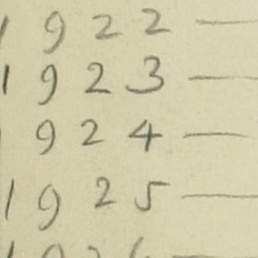 1922 —
1923 —
1924 —
1925 —